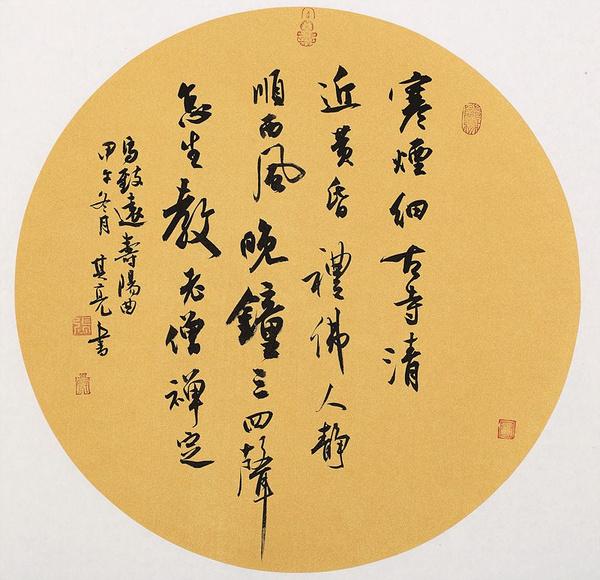 寒煙細古寺清
近黃昏禮佛人靜
順西風晚鐘三四聲
怎生教老僧禪定
馬致遠壽陽曲
甲午冬月其亮書